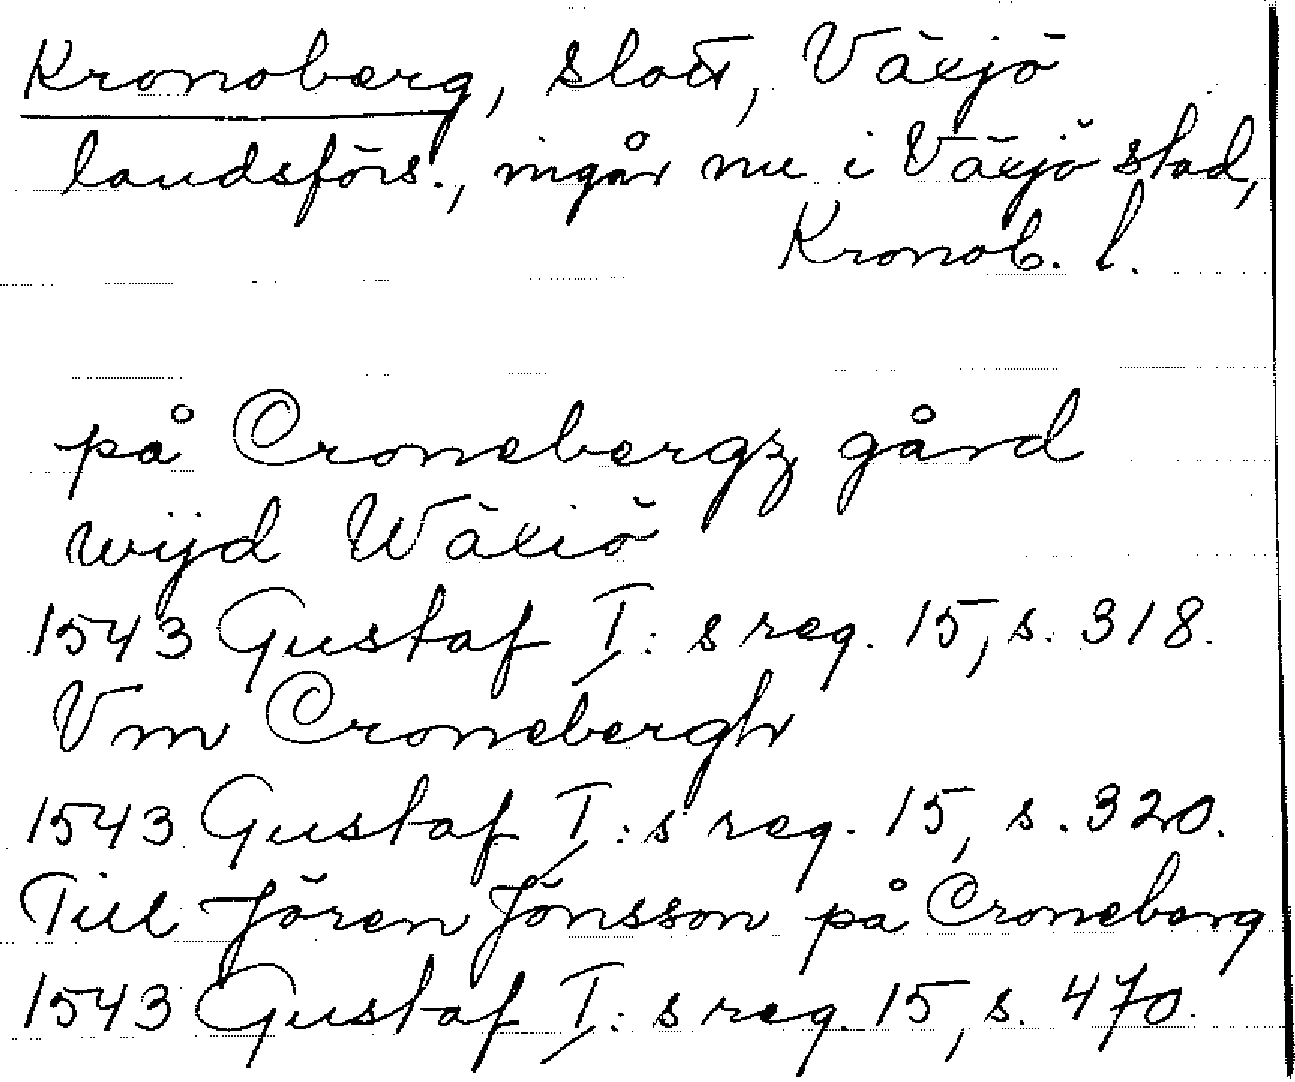 Kronoberg, slott, Växjö
landsförs., ingår nu i Växjö stad,
Kronob. l.
på Cronebergz gård
wijd Wäxiö
1543 Gustaf I:s reg. 15, s. 318.
Vm Cronebergh
1543 Gustaf I:s reg. 15, s. 320.
Till Jören Jönsson på Croneberg
1543 Gustaf I:s reg. 15, s. 470.